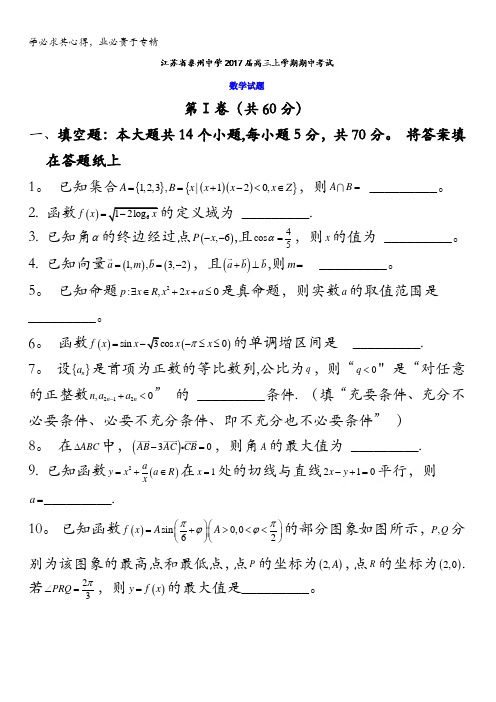 学必求其心得，业必贵于专精
江苏省泰州中学2017届高三上学期期中考试
数学试题
第Ⅰ卷（共60分）
一、填空题：本大题共14个小题,每小题5分，共70分。 将答案填
在答题纸上
1。 已知集合A={1,2,3},B={x|(x+1)(x-2)<0,x∈Z}，则A∩B= __________。
2. 函数f(x)=√(1-2log₆x)的定义域为 __________.
3. 已知角α的终边经过点P(-x,-6),且cosα=4/5，则x的值为 __________。
4. 已知向量a⃗=(1,m),b⃗=(3,-2)，且(a⃗+b⃗)⊥b⃗,则m= __________。
5。 已知命题p:∃x∈R,x²+2x+a≤0是真命题，则实数a的取值范围是
__________。
6。 函数f(x)=sin x-√3cos x(-π≤x≤0)的单调增区间是 __________.
7。 设{aₙ}是首项为正数的等比数列,公比为q，则“q<0"是“对任意
的正整数n,a₂ₙ₋₁+a₂ₙ<0” 的 __________条件.（填“充要条件、充分不
必要条件、必要不充分条件、即不充分也不必要条件” ）
8。 在ΔABC中，(AB⃗-3AC⃗)•CB⃗=0，则角A的最大值为 __________.
9. 已知函数y=x²+a/x(a∈R)在x=1处的切线与直线2x-y+1=0平行，则
a=__________.
10。 已知函数f(x)=Asin(π/6+φ)(A>0,0<φ<π/2)的部分图象如图所示，P,Q分
别为该图象的最高点和最低点，点P的坐标为(2,A)，点R的坐标为(2,0).
若∠PRQ=2π/3，则y=f(x)的最大值是__________。